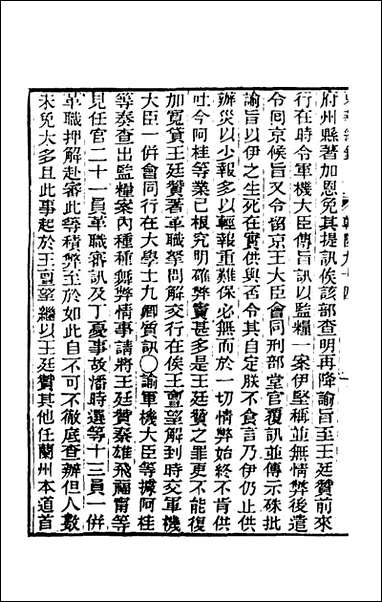 府州縣著加恩免其提訊俟該部查明再降諭旨至王廷贊前來
行在時令軍機大臣傳旨訊以監糧一案伊堅稱並無情弊後遣
令回京候旨又令留京王大臣會同刑部堂官覆訊並傳示硃批
諭旨以伊之生死在實供與否令其自定朕不食言乃伊仍止供
辦災以少報多以輕報重難保必無而於一切情弊始終不肯供
吐今阿桂等業已根究明確弊竇甚多是王廷贊之罪更不能復
加寬貸王廷贊著革職拏問解交行在俟王亶望解到時交軍機
大臣一併會同行在大學士九卿質訊〇諭軍機大臣等據阿桂
等奏查出監糧案內種種舞弊情事請將王廷贊秦雄飛福寧等
見任官二十一員革職審訊及丁憂事故潘時選等十三員一併
革職押解赴審此等積弊至於如此自不可不徹底查辦但人數
未免太多且此事起於王亶望繼以王廷贊其他任蘭州本道首